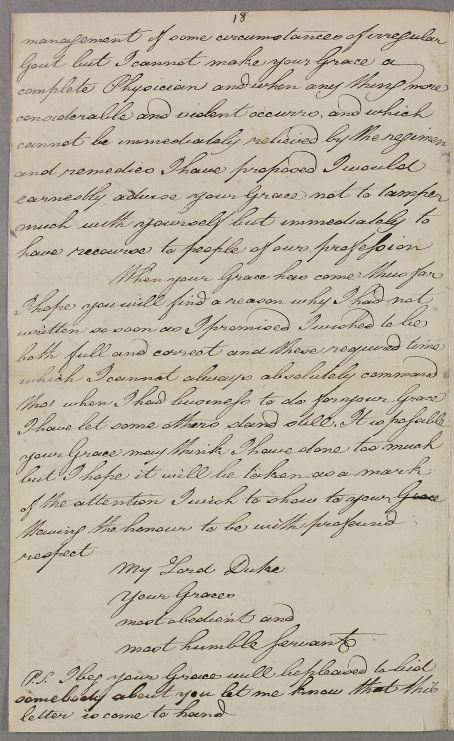 18
management of some circumstances of irregular
Gout but I cannot make your Grace a
complete Physician and when any thing more
considerable and violent occurrs, and which
cannot be immediately relieved by the regimen
and remedies I have proposed I would
earnestly advise your Grace not to tamper
much with yourself but immediately to
have recourse to people of our profession
When your Grace has come thus far
I hope you will find a reason why I had not
written so soon as I promised I wished to be
both full and correct and these required time
which I cannot always absolutely command
tho' when I had business to do for your Grace
I have let some others stand still. It is possible
your Grace may think I have done too much
but I hope it will be taken as a mark
of the attention I wish to show to your Grace
Having the honour to be with profound
respect
My Lord Duke
your Graces
most obedient and
most humble Servant
P.S. I beg your Grace will be pleased to bid
somebody about you let me know that this
letter is come to hand